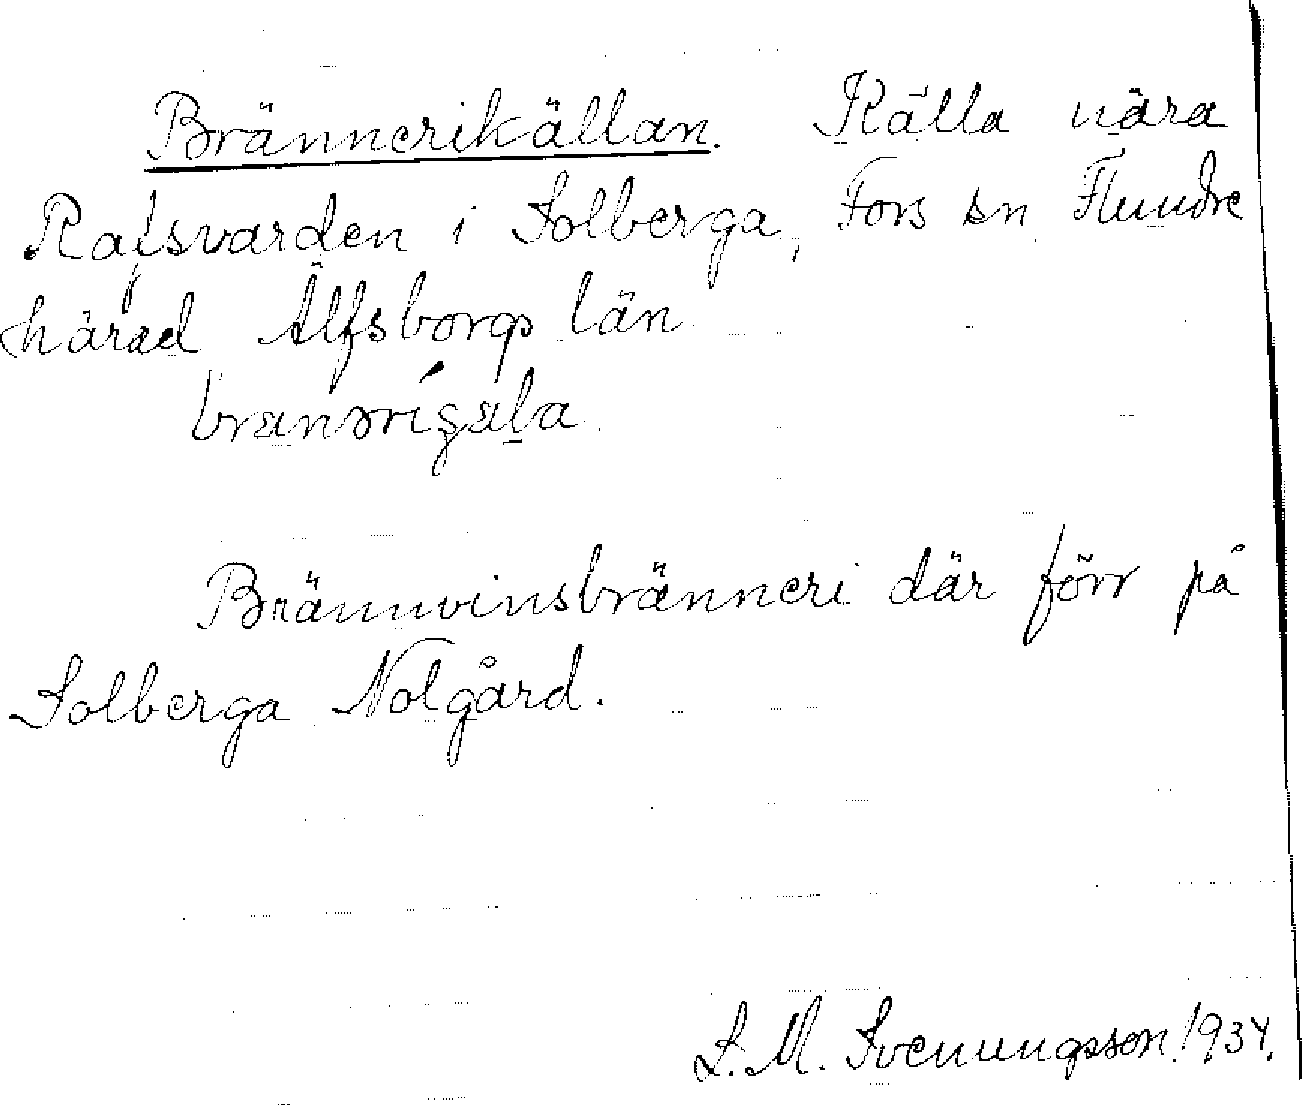 Brännerikällan. Källa nära
Rafsvarden i Solberga, Fors sn Flundre
härad Älfsborgs län
Brännvinsbränneri där förr på
Solberga Nolgård.
S. M. Svenungsson. 1934.